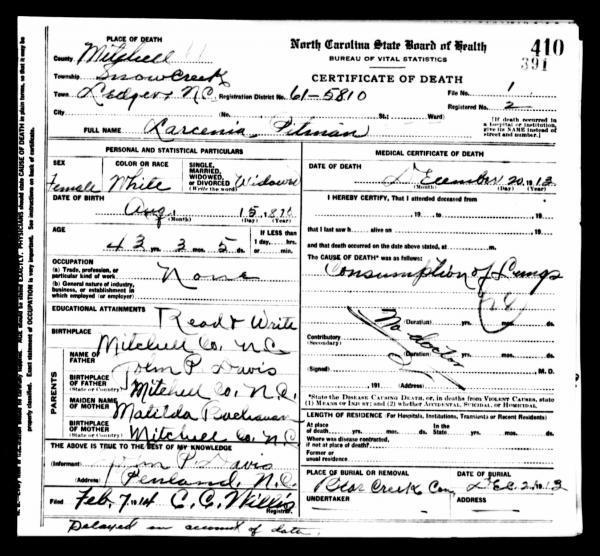 PLACE OF DEATH
North Carolina State Board of Health
410
County Mitchell
BUREAU OF VITAL STATISTICS
391
Township Snow Creek
CERTIFICATE OF DEATH
Town Ledger N.C. Registration District No. 61-5810 File No. 1
Registered No. 2
City (No. St.; Ward)
[If death occurred in a hospital or institution, give its NAME instead of street and number.]
FULL NAME Larcenia Pitman
PERSONAL AND STATISTICAL PARTICULARS
SEX Female
COLOR OR RACE White
SINGLE, MARRIED, WIDOWED, or DIVORCED (Write the word) Widowed
DATE OF BIRTH
Aug. 15, 1870
(Month) (Day) (Year)
AGE
43 yrs. 3 mos. 5 ds.
If LESS than 1 day, hrs. or min.
OCCUPATION
(a) Trade, profession, or particular kind of work. None
(b) General nature of industry, business, or establishment in which employed (or employer)
EDUCATIONAL ATTAINMENTS
Read & Write
BIRTHPLACE
Mitchell Co. N.C.
PARENTS
NAME OF FATHER John P. Davis
BIRTHPLACE OF FATHER (State or Country) Mitchell Co, N.C.
MAIDEN NAME OF MOTHER Matilda Buchanan
BIRTHPLACE OF MOTHER (State or Country) Mitchell Co N.C.
THE ABOVE IS TRUE TO THE BEST OF MY KNOWLEDGE
(Informant) John P. Davis
(Address) Penland, N.C.
Filed Feb. 7 1914 C. C. Willis
Registrar.
Delayed on account of date.
MEDICAL CERTIFICATE OF DEATH
DATE OF DEATH
December 20, 1913
(Month) (Day) (Year)
I HEREBY CERTIFY, That I attended deceased from
, 19 , to , 19 ,
that I last saw h alive on , 19 ,
and that death occurred on the date above stated, at m.
The CAUSE OF DEATH* was as follows:
Consumption of Lungs
28
(Duration) yrs. mos. ds.
No doctor
Contributory
(Secondary)
(Duration) yrs. mos. ds.
(Signed) M. D.
, 191 (Address)
*State the DISEASE CAUSING DEATH, or, in deaths from VIOLENT CAUSES, state (1) MEANS OF INJURY; and (2) whether ACCIDENTAL, SUICIDAL, or HOMICIDAL.
LENGTH OF RESIDENCE (For Hospitals, Institutions, Transients or Recent Residents)
At place of death yrs. mos. ds. In the State yrs. mos. ds.
Where was disease contracted, if not at place of death?
Former or usual residence
PLACE OF BURIAL OR REMOVAL
DATE OF BURIAL
Bear Creek Cem
UNDERTAKER
ADDRESS